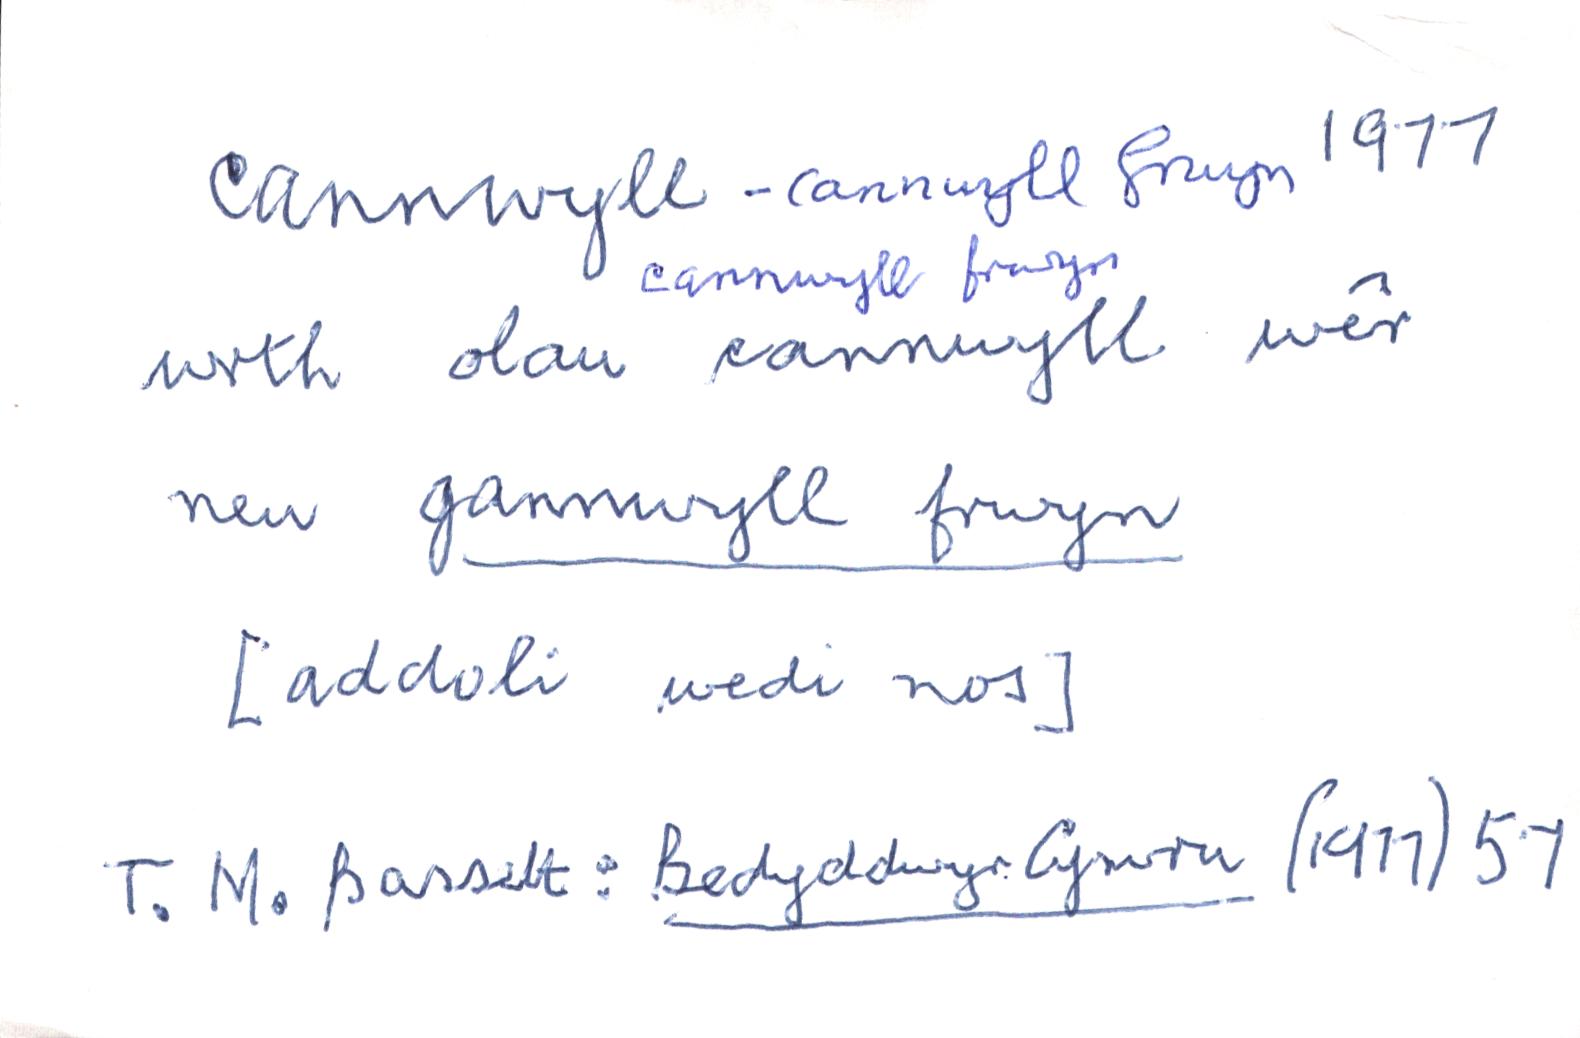 cannwyll - cannwyll frwyn 1977
cannwyll frwyn
wrth olau cannwyll wêr
neu gannwyll frwyn
[addoli wedi nos]
T. M. Bassett: Bedyddwyr Cymru (1977) 57